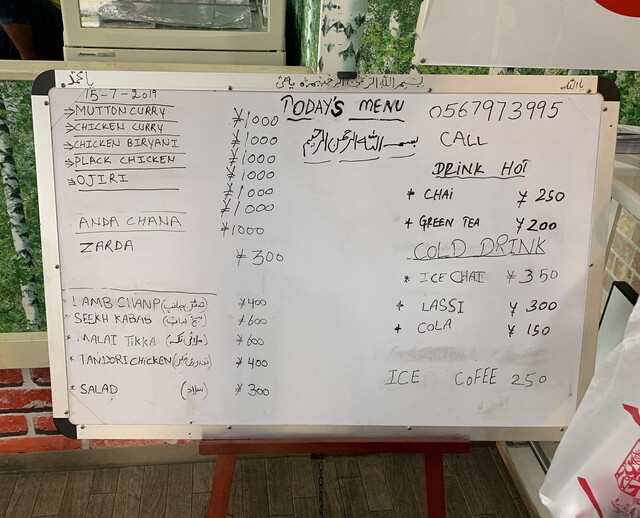 بسم اللہ الرحمن الرحیم
15-7-2019
TODAY'S MENU
→ MUTTON CURRY ¥1000
→ CHICKEN CURRY ¥1000
→ CHICKEN BIRYANI ¥1000
→ PLACK CHICKEN ¥1000
→ OJIRI ¥1000
ANDA CHANA ¥1000
ZARDA ¥300
LAMB CHANP ¥400
SEEKH KABAB ¥600
* MALAI TIKKA ¥600
* TANDORI CHICKEN ¥400
* SALAD (سلاد) ¥300
بسم اللہ الرحمن الرحیم
0567973995
CALL
DRINK HOT
* CHAI ¥250
* GREEN TEA ¥200
COLD DRINK
* ICE CHAI ¥350
* LASSI ¥300
* COLA ¥150
ICE COFEE 250